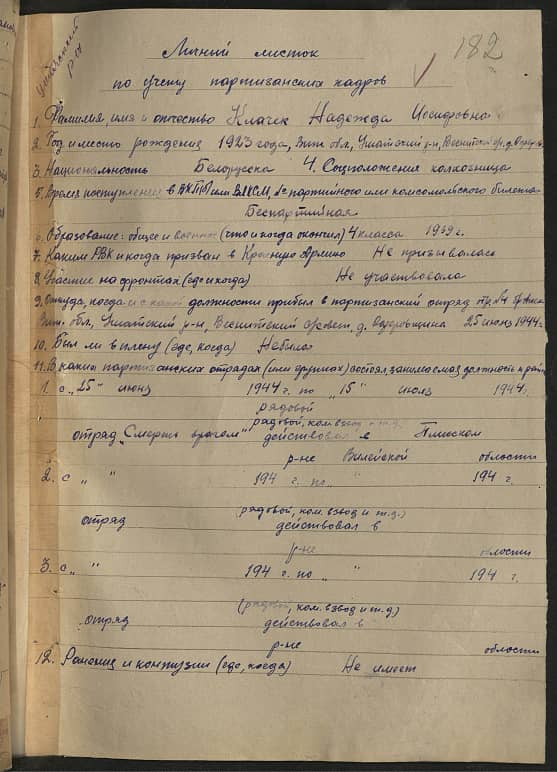 182
Ушачский р-н
Личный листок
по учету партизанских кадров
1. Фамилия, имя и отчество Клачек Надежда Иосифовна
2. Год и место рождения 1923 года, Вит. обл, Ушатский р-н, Весницкий с/с, д.
3. Национальность Белоруска 4. Соцположения колхозница
5. Время поступления в ВКП(б) или ВЛКСМ, № партийного или комсомольского билета
Беспартийная
6. Образование: общее и военное (что и когда окончил) 4 класса 1939 г.
7. Каким РВК и когда призван в Красную Армию Не призывалась
8. Участие на фронтах (где и когда) Не участвовала
9. Откуда, когда и с какой должности прибыл в партизанский отряд
Вит. обл, Ушатский р-н, Веснитский с/совет, д. 25 июня 1944 г.
10. Был ли в плену (где, когда) Не была
11. В каких партизанских отрядах (или группах) состоял занимаемая должность и район
1. с „25" июня 1944 г. по „15" июля 1944 г.
рядовой
(рядовой, ком. взвод и т.д.)
отряд „Смерть врагам" действовал в Плисском
р-не Вилейской области
2. с „ " 194 г. по „ " 194 г.
(рядовой, ком. взвод и т.д.)
отряд действовал в
р-не области
3. с „ " 194 г. по „ " 194 г.
(рядовой, ком. взвод и т.д.)
отряд действовал в
р-не области
12. Ранения и контузии (где, когда) Не имеет